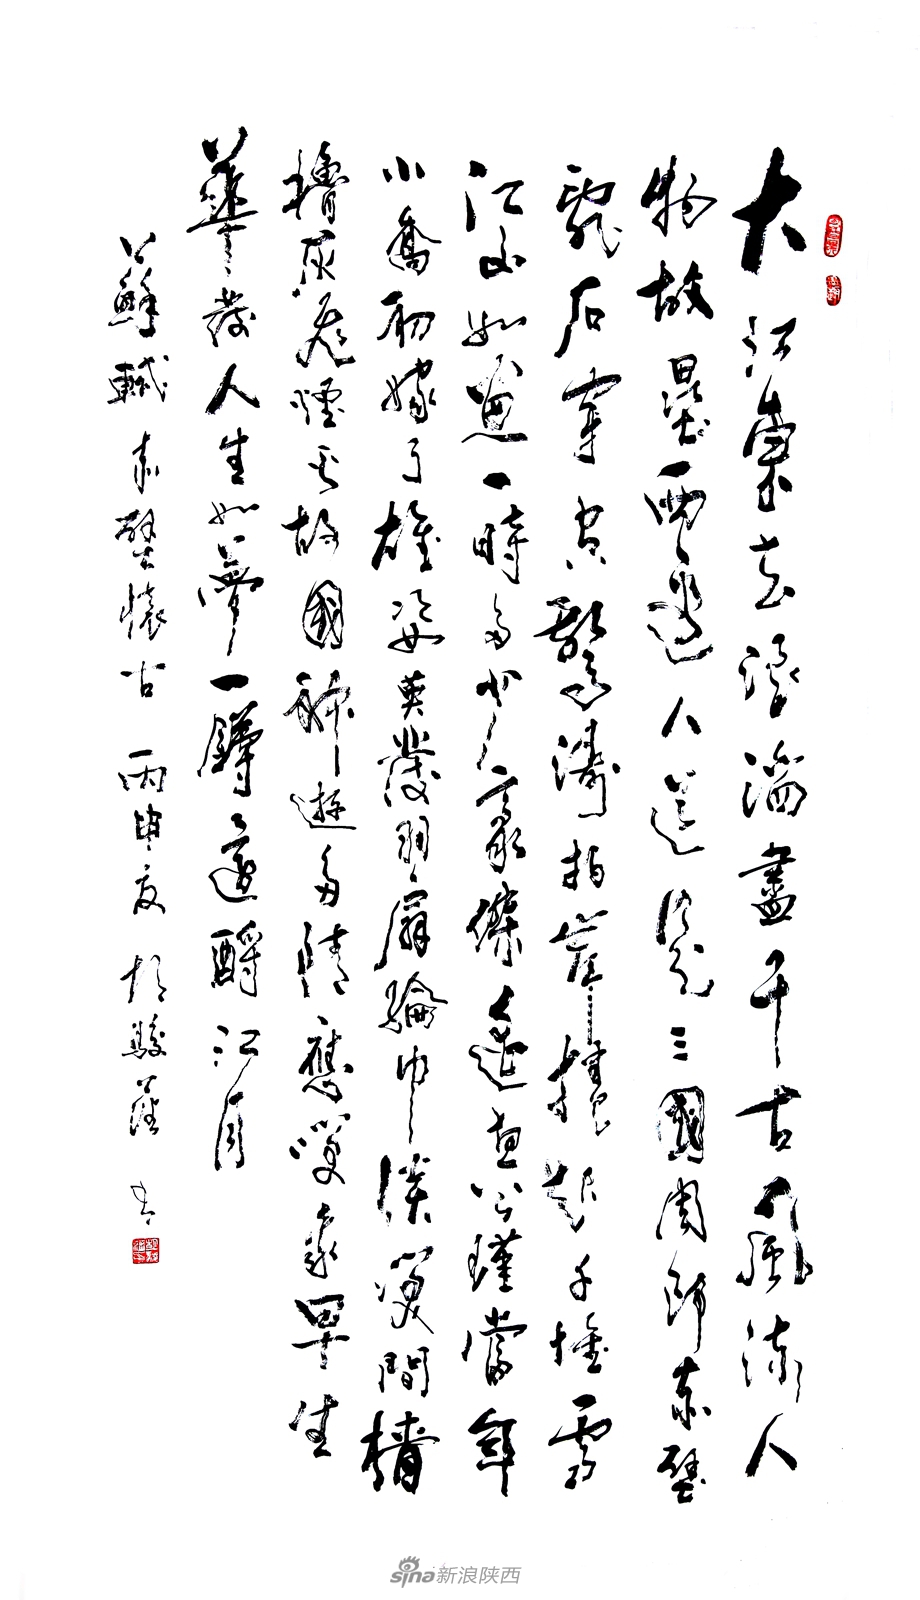 大江東去浪淘盡千古風流人
物故壘西邊人道是三國周郎赤壁
亂石穿空驚濤拍岸捲起千堆雪
江山如畫一時多少豪傑遙想公瑾當年
小喬初嫁了雄姿英發羽扇綸巾談笑間檣
櫓灰飛煙滅故國神遊多情應笑我早生
華發人生如夢一鐏還酹江月
蘇軾 赤壁懷古 丙申夏 胡駿 書
sina新浪陕西